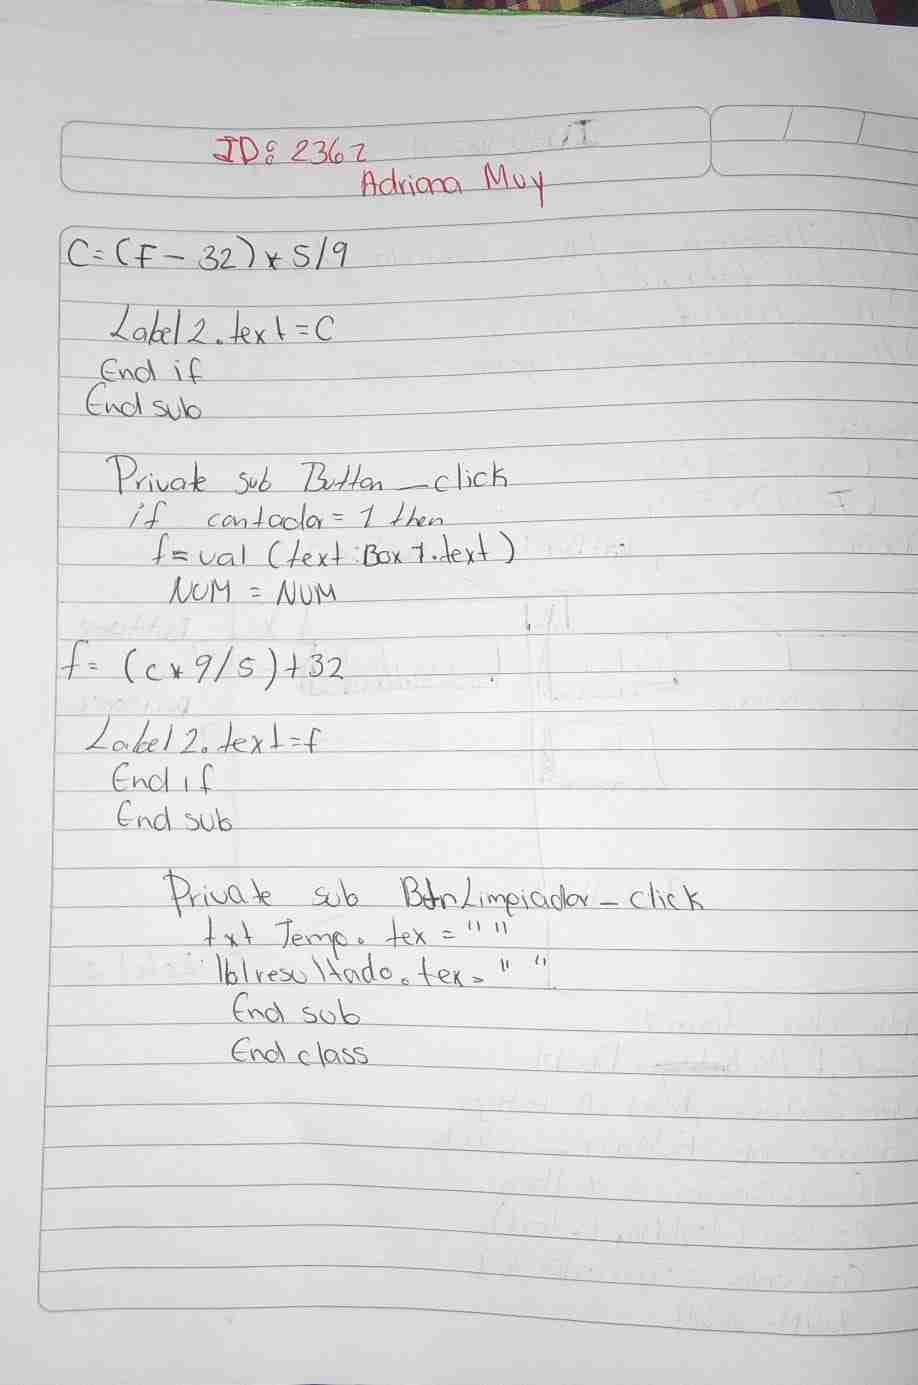 ID: 2362
Adriana Muy
C=(F-32)*5/9
Label2.text=C
End if
End sub
Private sub Button_click
if contador=1 then
f=val(text.Box1.text)
NUM=NUM
f=(c*9/5)+32
Label2.text=f
End if
End sub
Private sub BtnLimpiador_click
txt Temp.tex=" "
lblresultado.tex=" "
End sub
End class